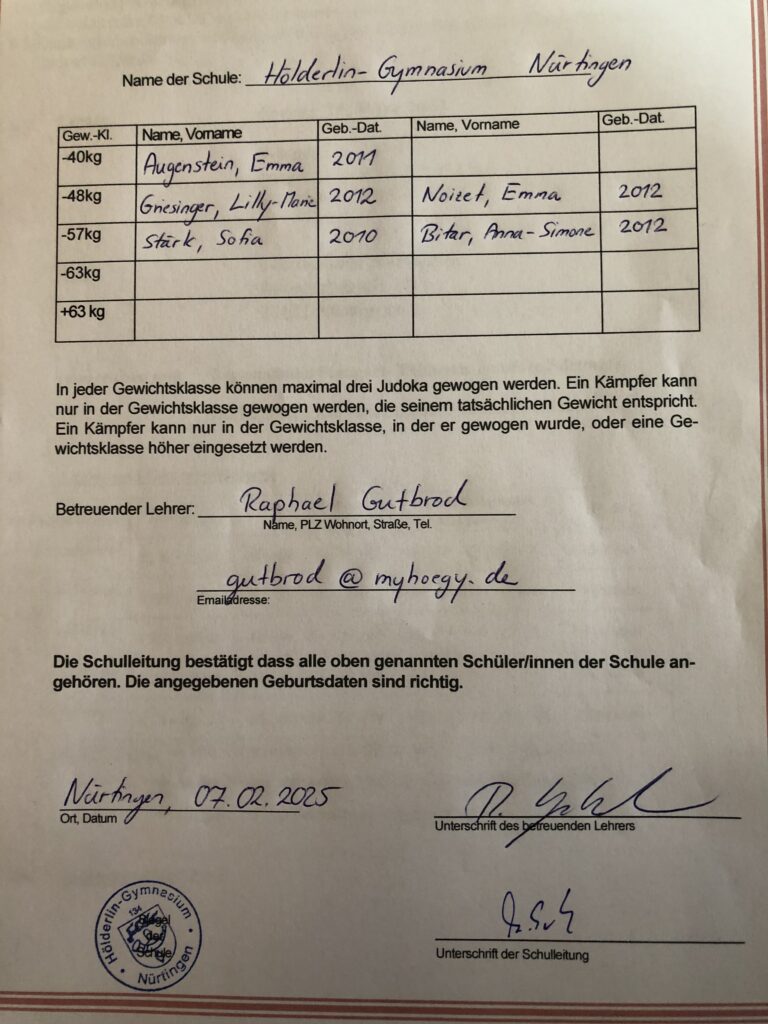 Name der Schule: Hölderlin-Gymnasium Nürtingen
Gew.-Kl. Name, Vorname Geb.-Dat. Name, Vorname Geb.-Dat.
-40kg Augenstein, Emma 2011
-48kg Griesinger, Lilly-Marie 2012 Noizet, Emma 2012
-57kg Stärk, Sofia 2010 Bitar, Anna-Simone 2012
-63kg
+63 kg
In jeder Gewichtsklasse können maximal drei Judoka gewogen werden. Ein Kämpfer kann
nur in der Gewichtsklasse gewogen werden, die seinem tatsächlichen Gewicht entspricht.
Ein Kämpfer kann nur in der Gewichtsklasse, in der er gewogen wurde, oder eine Ge-
wichtsklasse höher eingesetzt werden.
Betreuender Lehrer: Raphael Gutbrod
Name, PLZ Wohnort, Straße, Tel.
gutbrod @ myhoegy.de
Emailadresse:
Die Schulleitung bestätigt dass alle oben genannten Schüler/innen der Schule an-
gehören. Die angegebenen Geburtsdaten sind richtig.
Nürtingen, 07.02.2025
Ort, Datum
Unterschrift des betreuenden Lehrers
Hölderlin-Gymnasium
134
Siegel
der
Schule
Nürtingen
Unterschrift der Schulleitung